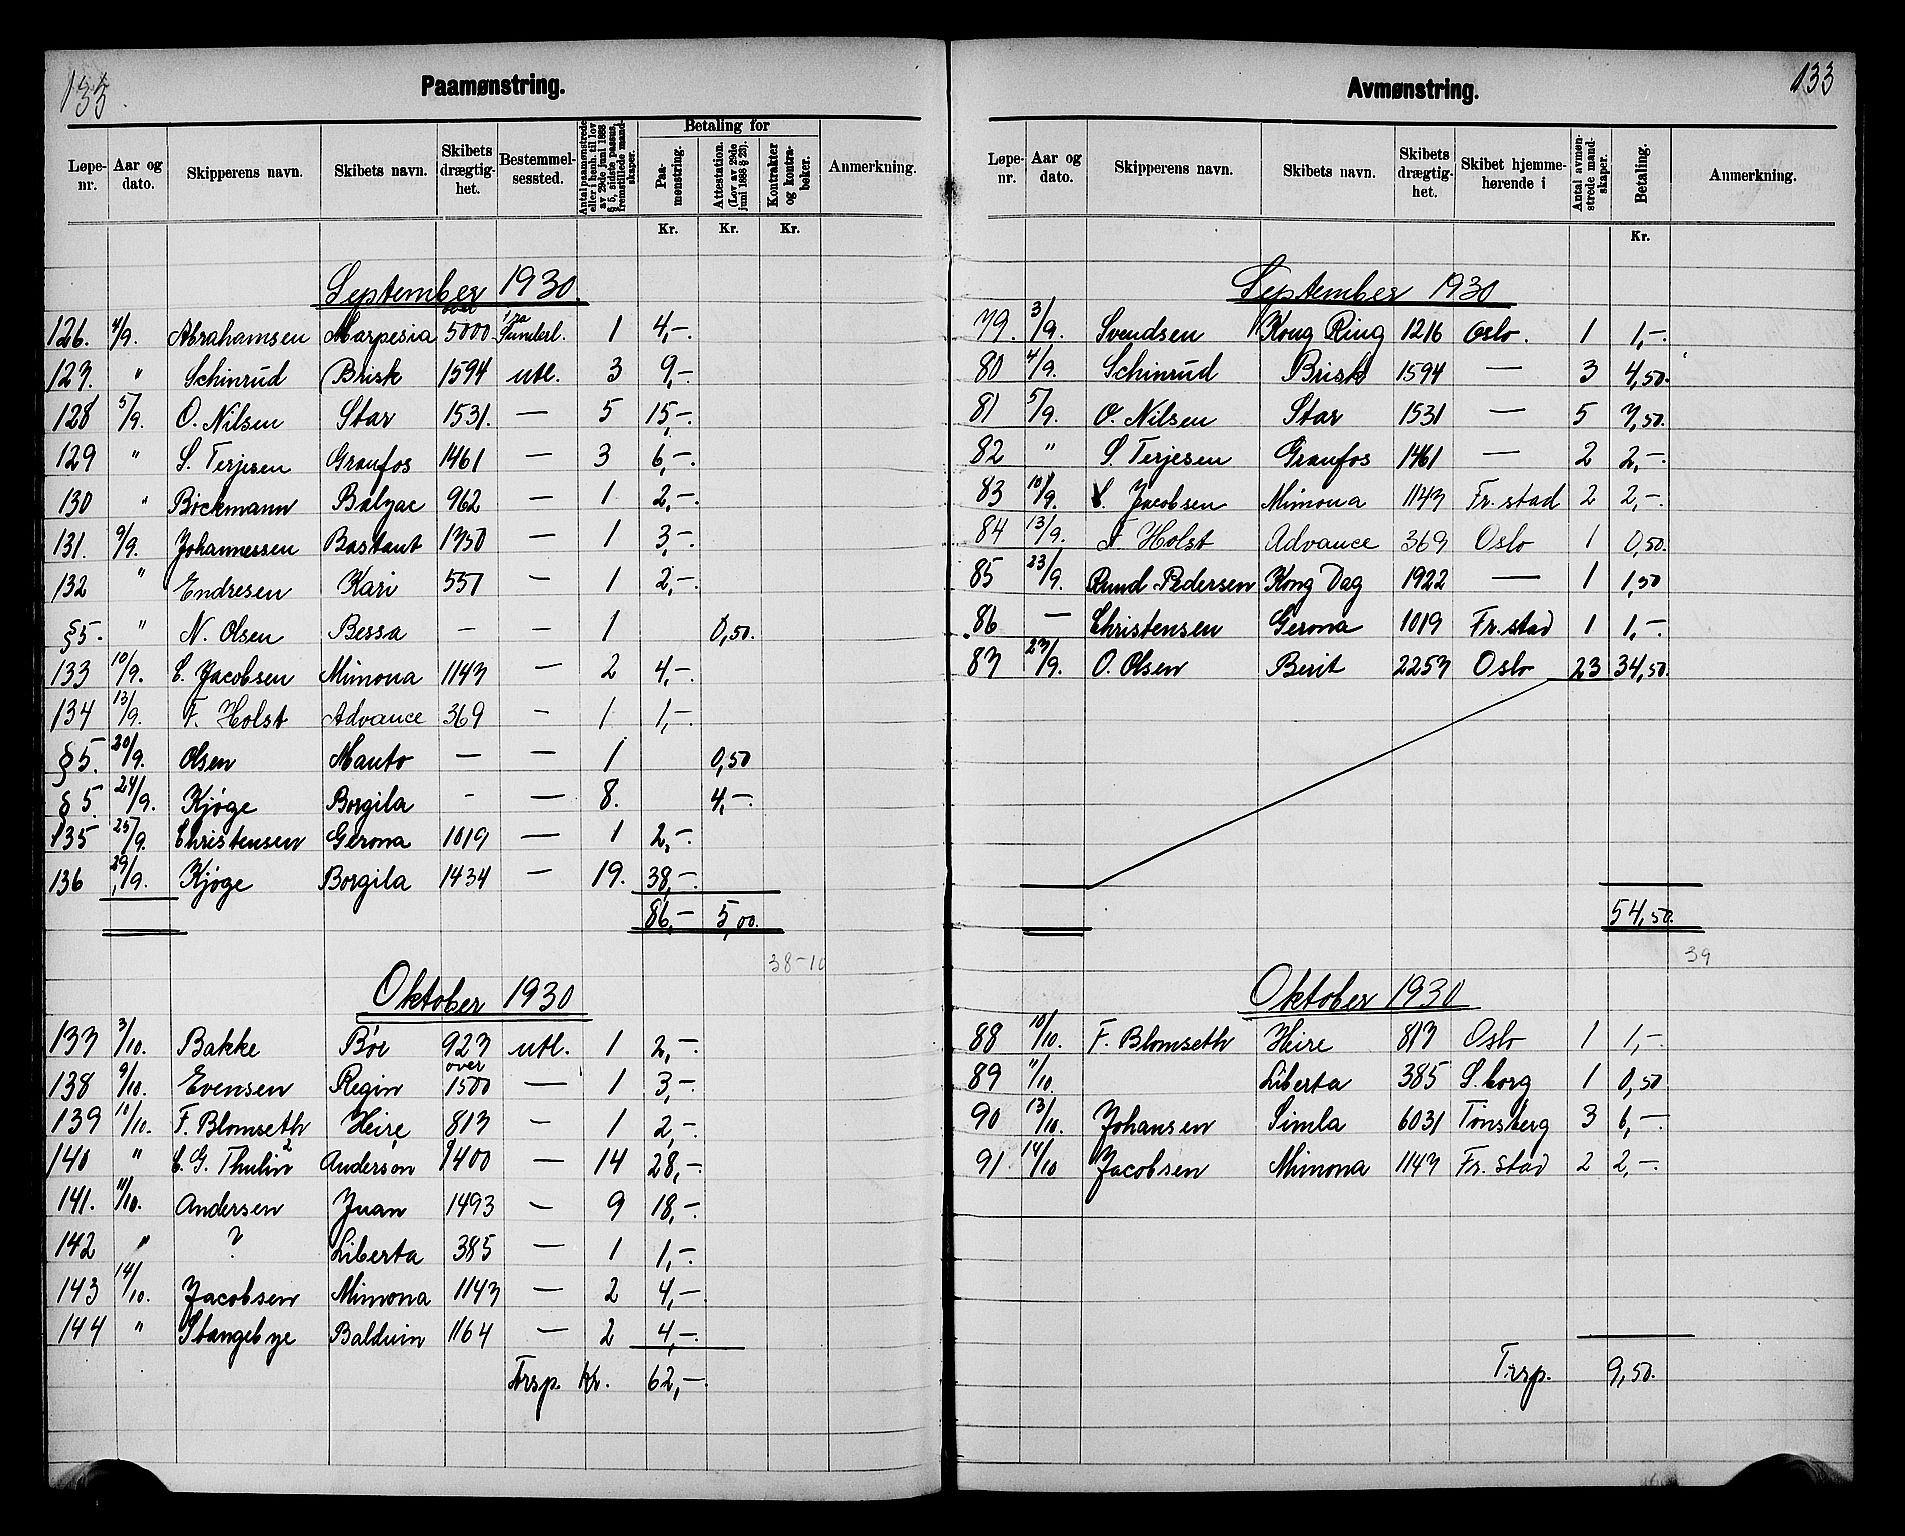 133.
Paamønstring.
Løpe-nr. | Aar og dato. | Skipperens navn. | Skibets navn. | Skibets drægtighet. | Bestemmelsessted. | Antal paamønstrede eller i henh. til lov av 29de juni 1888 § 5, sidste passus, fremstillede mandskaper. | Betaling for | Paamønstring. Kr. | Attestation. (Lov av 29de juni 1888 § 23). Kr. | Kontrakter og kontrabøker. Kr. | Anmerkning.
September 1930
over
126. 4/9. Abrahamsen Marpesia 5000. fra Sunderl. 1 4,-
127. " Schinrud Brisk 1594 utl. 3 9,-
128 5/9. O. Nilsen Star 1531. — 5 15,-
129 " S. Terjesen Granfos 1461 — 3 6,-
130 " Bøckmann Balzac 962 — 1 2,-
131. 9/9. Johannessen Bastant 1750 — 1 3,-
132 " Endresen Kari 557 — 1 2,-
§5. " N. Olsen Bessa — — 1 0,50.
133 10/9. C. Jacobsen Mimona 1147 — 2 4,-
134 13/9. F. Holst Advance 369 — 1 1,-
§5. 20/9. Olsen Manto — — 1 0,50
§5. 24/9. Kjøge Borgila - — 8. 4,-.
135 25/9. Christensen Gerona 1019 — 1 2,-
136 29/9. Kjøge Borgila 1434 — 19. 38,-
86,- 5,00.
38-10
Oktober 1930
137 3/10. Bakke Bøe 927 utl. 1 2,-
over
138 9/10. Evensen Regin 1500 — 1 3,-
139 10/10. F. Blomseth Heire 817 — 1 2,-
140 " C. G. Thulin 2 Anderson 1400 — 14 28,-
141. 11/10. Andersen Juan 1493 — 9 18,-
142 " ? Liberta 385 — 1 1,-
143 14/10. Jacobsen Mimona 1147 — 2 4,-
144 " Stangebye Balduin 1164 — 2 4,-
Trsp. Kr. 62,-
133
Avmønstring.
Løpe-nr. | Aar og dato. | Skipperens navn. | Skibets navn. | Skibets drægtighet. | Skibet hjemmehørende i | Antal avmønstrede mandskaper. | Betaling. Kr. | Anmerkning.
September 1930
79. 3/9. Svendsen Kong Ring 1216 Oslo. 1 1,-
80 4/9. Schinrud Brisk 1594 — 3 4,50.
81 5/9. O. Nilsen Star 1531 — 5 7,50.
82 " S. Terjesen Granfos 1461 — 2 2,-
83 10/9. C. Jacobsen Mimona 1147 Fr.stad 2 2,-
84 13/9. F. Holst Advance 369 Oslo 1 0,50.
85 23/9. Amd. Pedersen Kong Dag 1922 — 1 1,50
86 — Christensen Gerona 1019 Fr.stad 1 1,-
87 27/9. O. Olsen Berit 2257 Oslo 23 34,50.
54,50.
39
Oktober 1930
88 10/10. F. Blomseth Heire 817 Oslo 1 1,-
89 11/10 Liberta 385 S.borg 1 0,50
90 13/10. Johansen Simla 6031 Tønsberg 3 6,-
91. 14/10 Jacobsen Mimona 1147 Fr.stad 2 2,-
Trsp. 9,50.